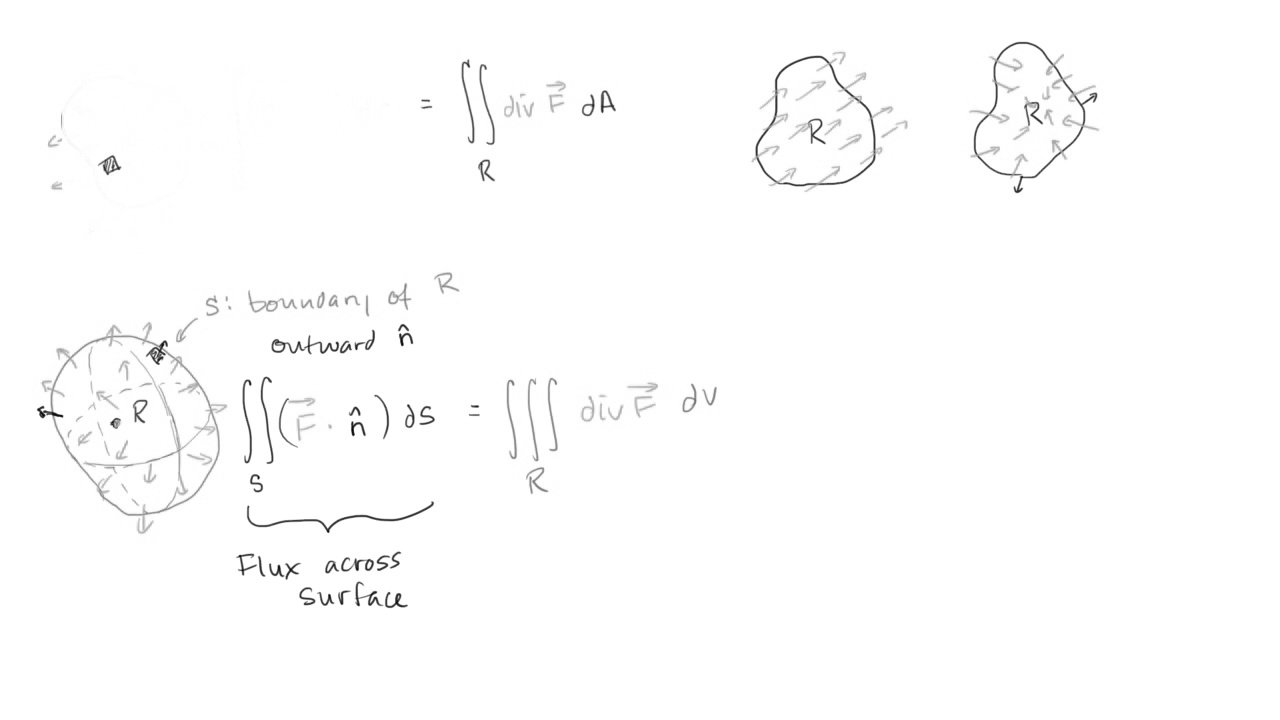 = ∬ div F⃗ dA
R
R
R
S: boundary of R
outward n̂
R
∬ (F⃗ · n̂) dS = ∭ div F⃗ dV
S
R
Flux across
surface